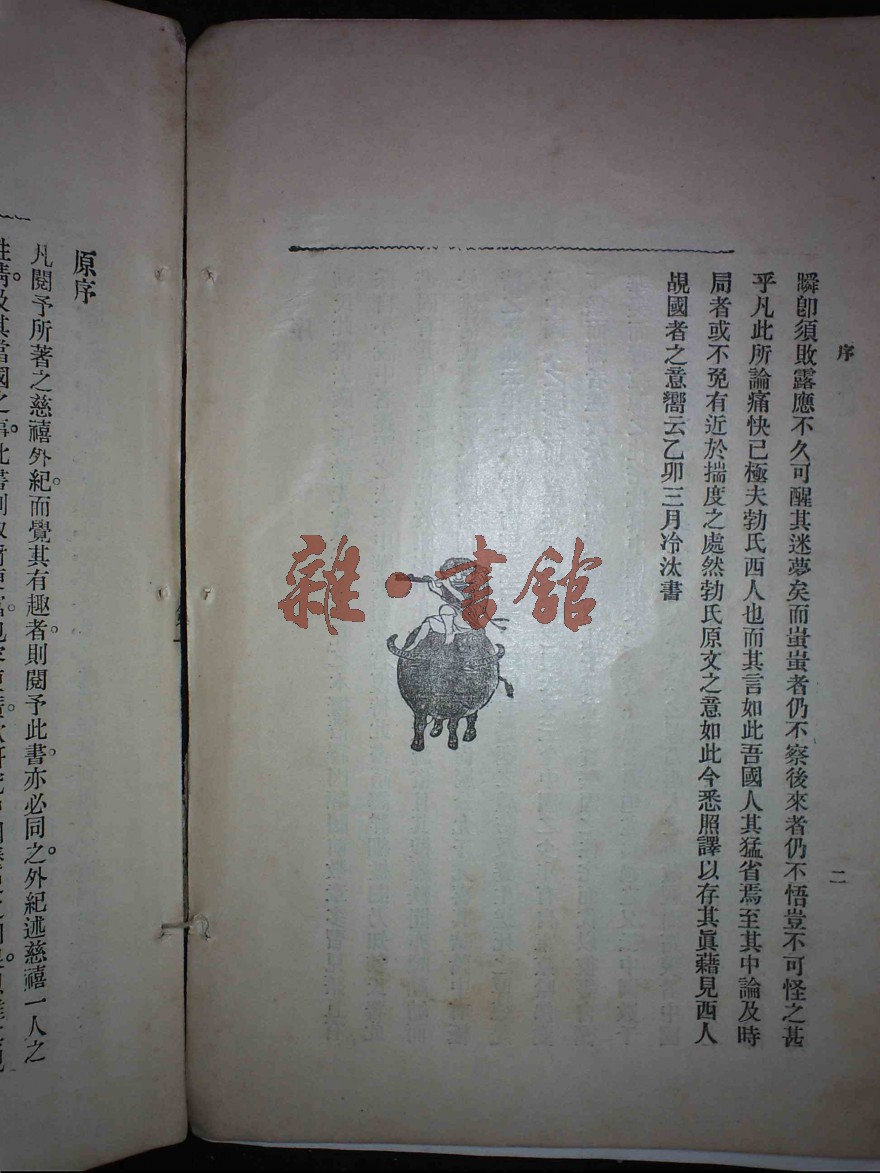 序
二
瞬卽須敗露應不久可醒其迷夢矣而蚩蚩者仍不察後來者仍不悟豈不可怪之甚
乎凡此所論痛快已極夫勃氏西人也而其言如此吾國人其猛省焉至其中論及時
局者或不免有近於揣度之處然勃氏原文之意如此今悉照譯以存其眞藉見西人
覘國者之意嚮云乙卯三月冷汰書
雜·書館
原序
凡閱予所著之慈禧外紀。而覺其有趣者。則閱予此書。亦必同之。外紀述慈禧一人之
性情。及其當國之事。此書則